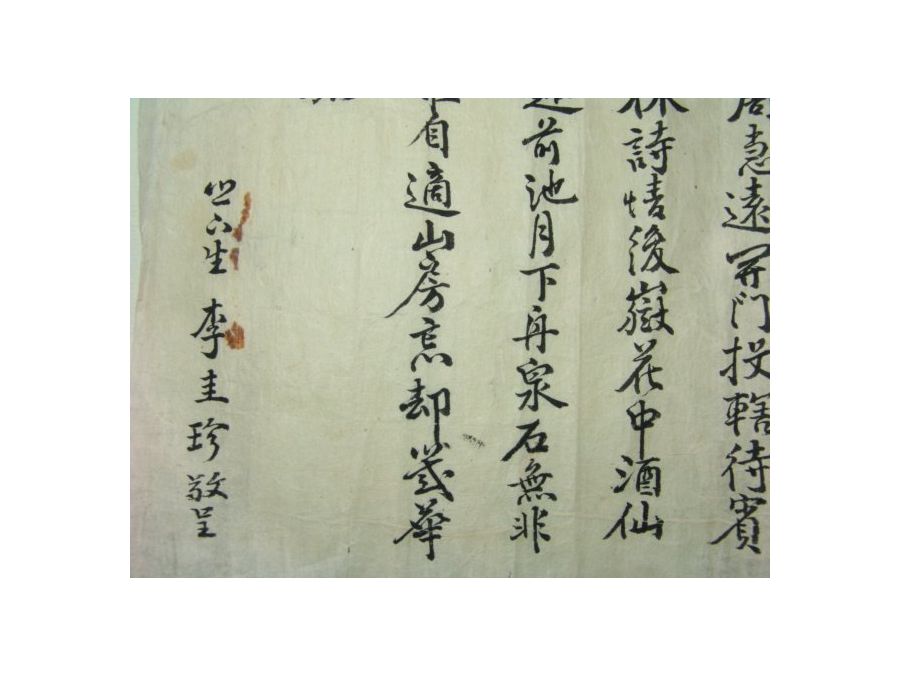 惠遠開门投轄待賓
詩情後嶽花中酒仙
前池月下舟泉石無非
自適山房忘却歲華
生 李圭珍敬呈